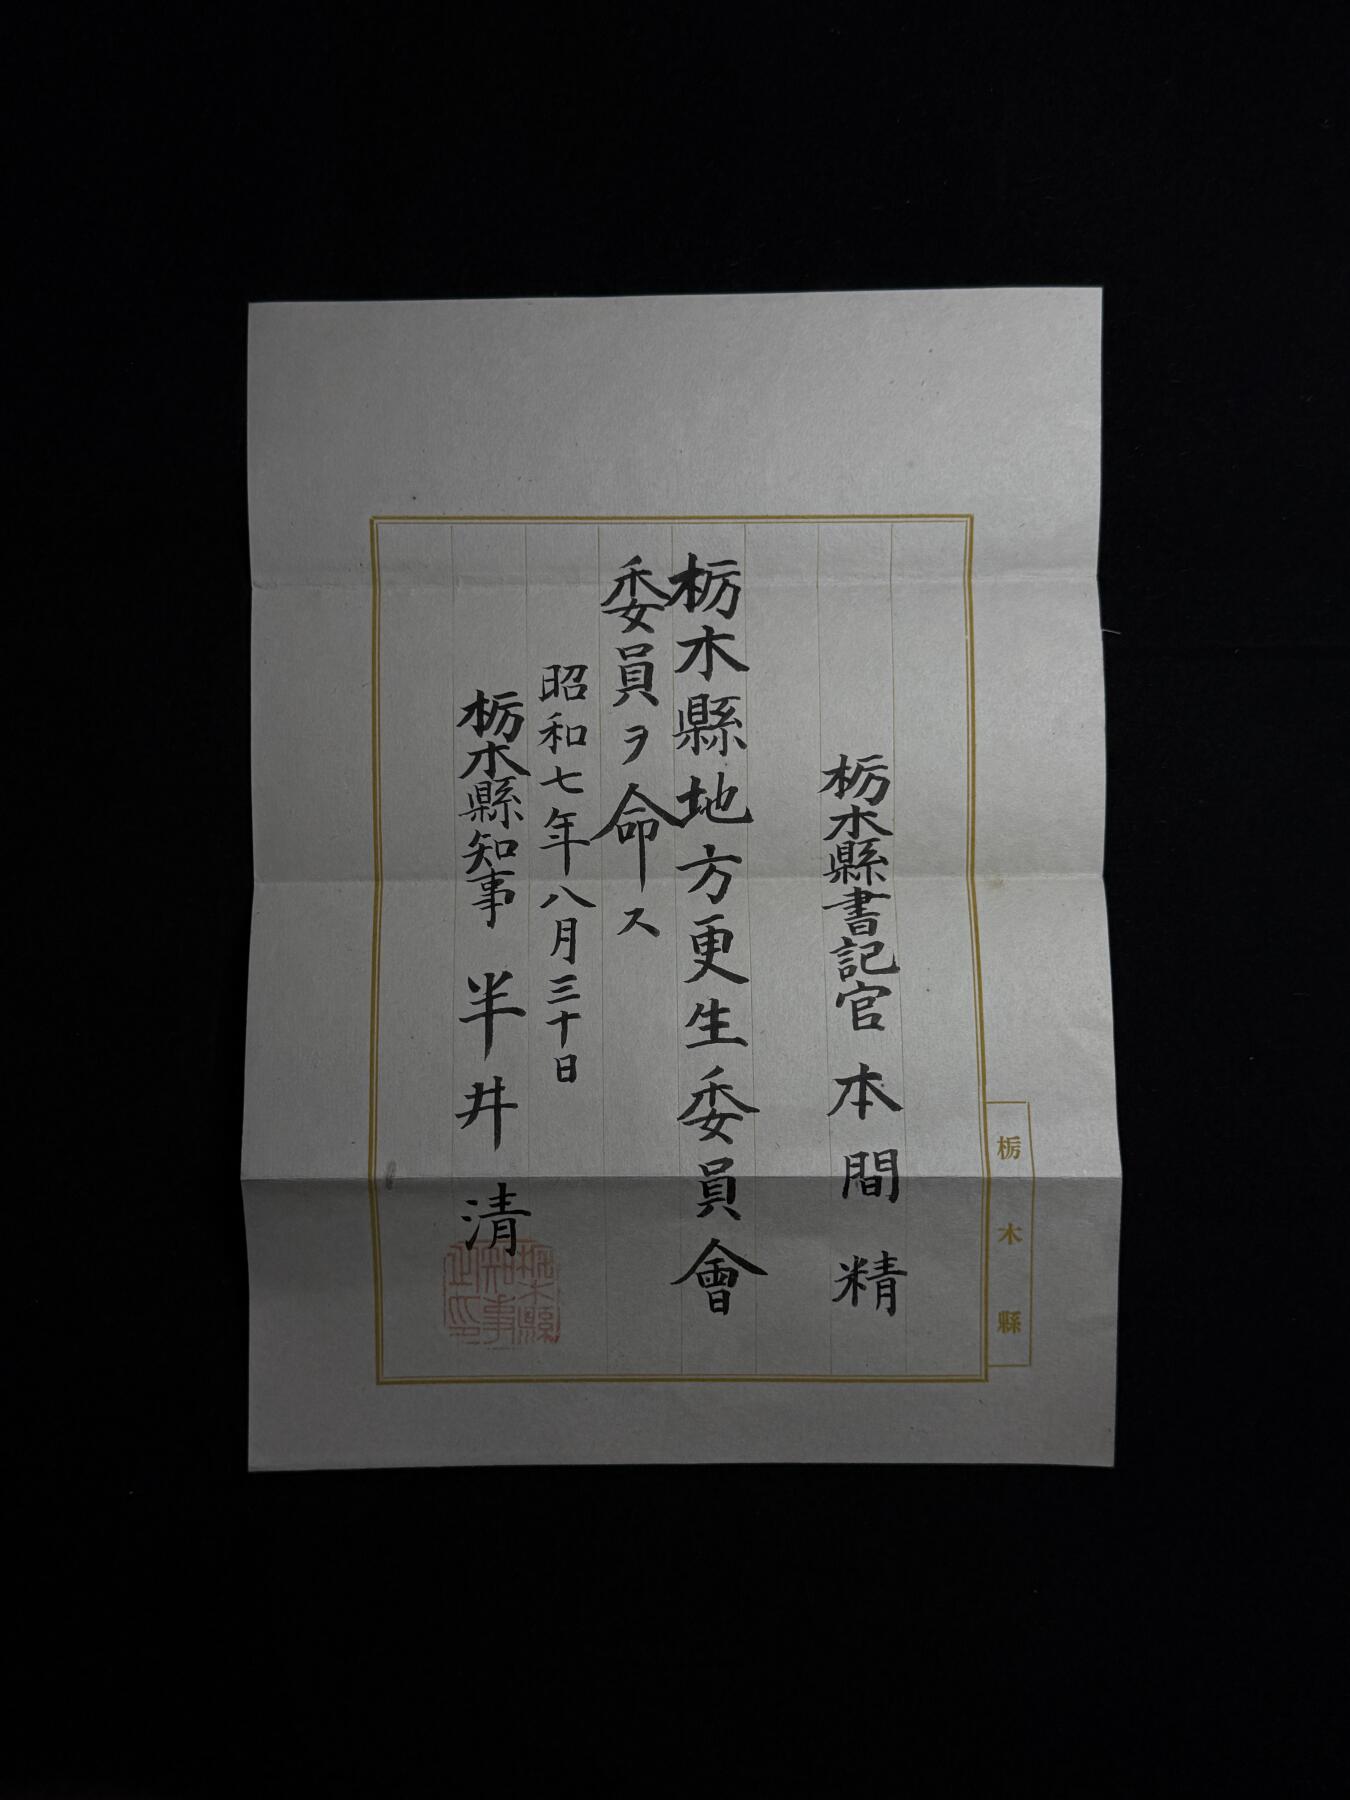 栃木縣書記官 本間精
栃木縣地方更生委員會
委員ヲ命ス
昭和七年八月三十日
栃木縣知事 半井清
栃木縣
知事
之印
栃木縣